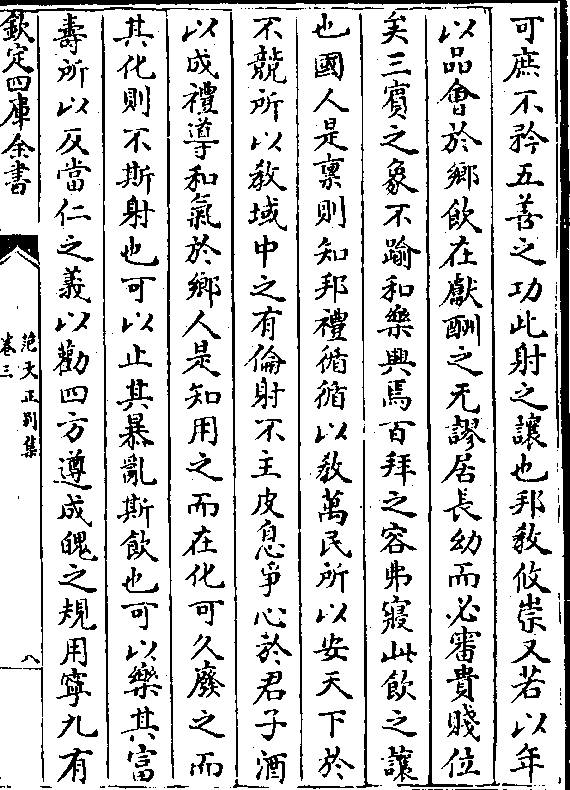 可庶不矜五善之功此射之讓也邦教攸崇又若以年
以品會於鄉飲在獻酬之无謬居長幼而必審貴賤位
矣三賓之象不踰和樂興焉百拜之容弗寢此飲之讓
也國人是稟則知邦禮循循以敎萬民所以安天下於
不競所以敎域中之有倫射不主皮息爭心於君子酒
以成禮導和氣於鄉人是知用之而在化可久廢之而
其化則不斯射也可以止其暴亂斯飲也可以樂其富
壽所以反當仁之義以勸四方遵成魄之規用寧九有
欽定四庫全書
范文正别集
卷三
八